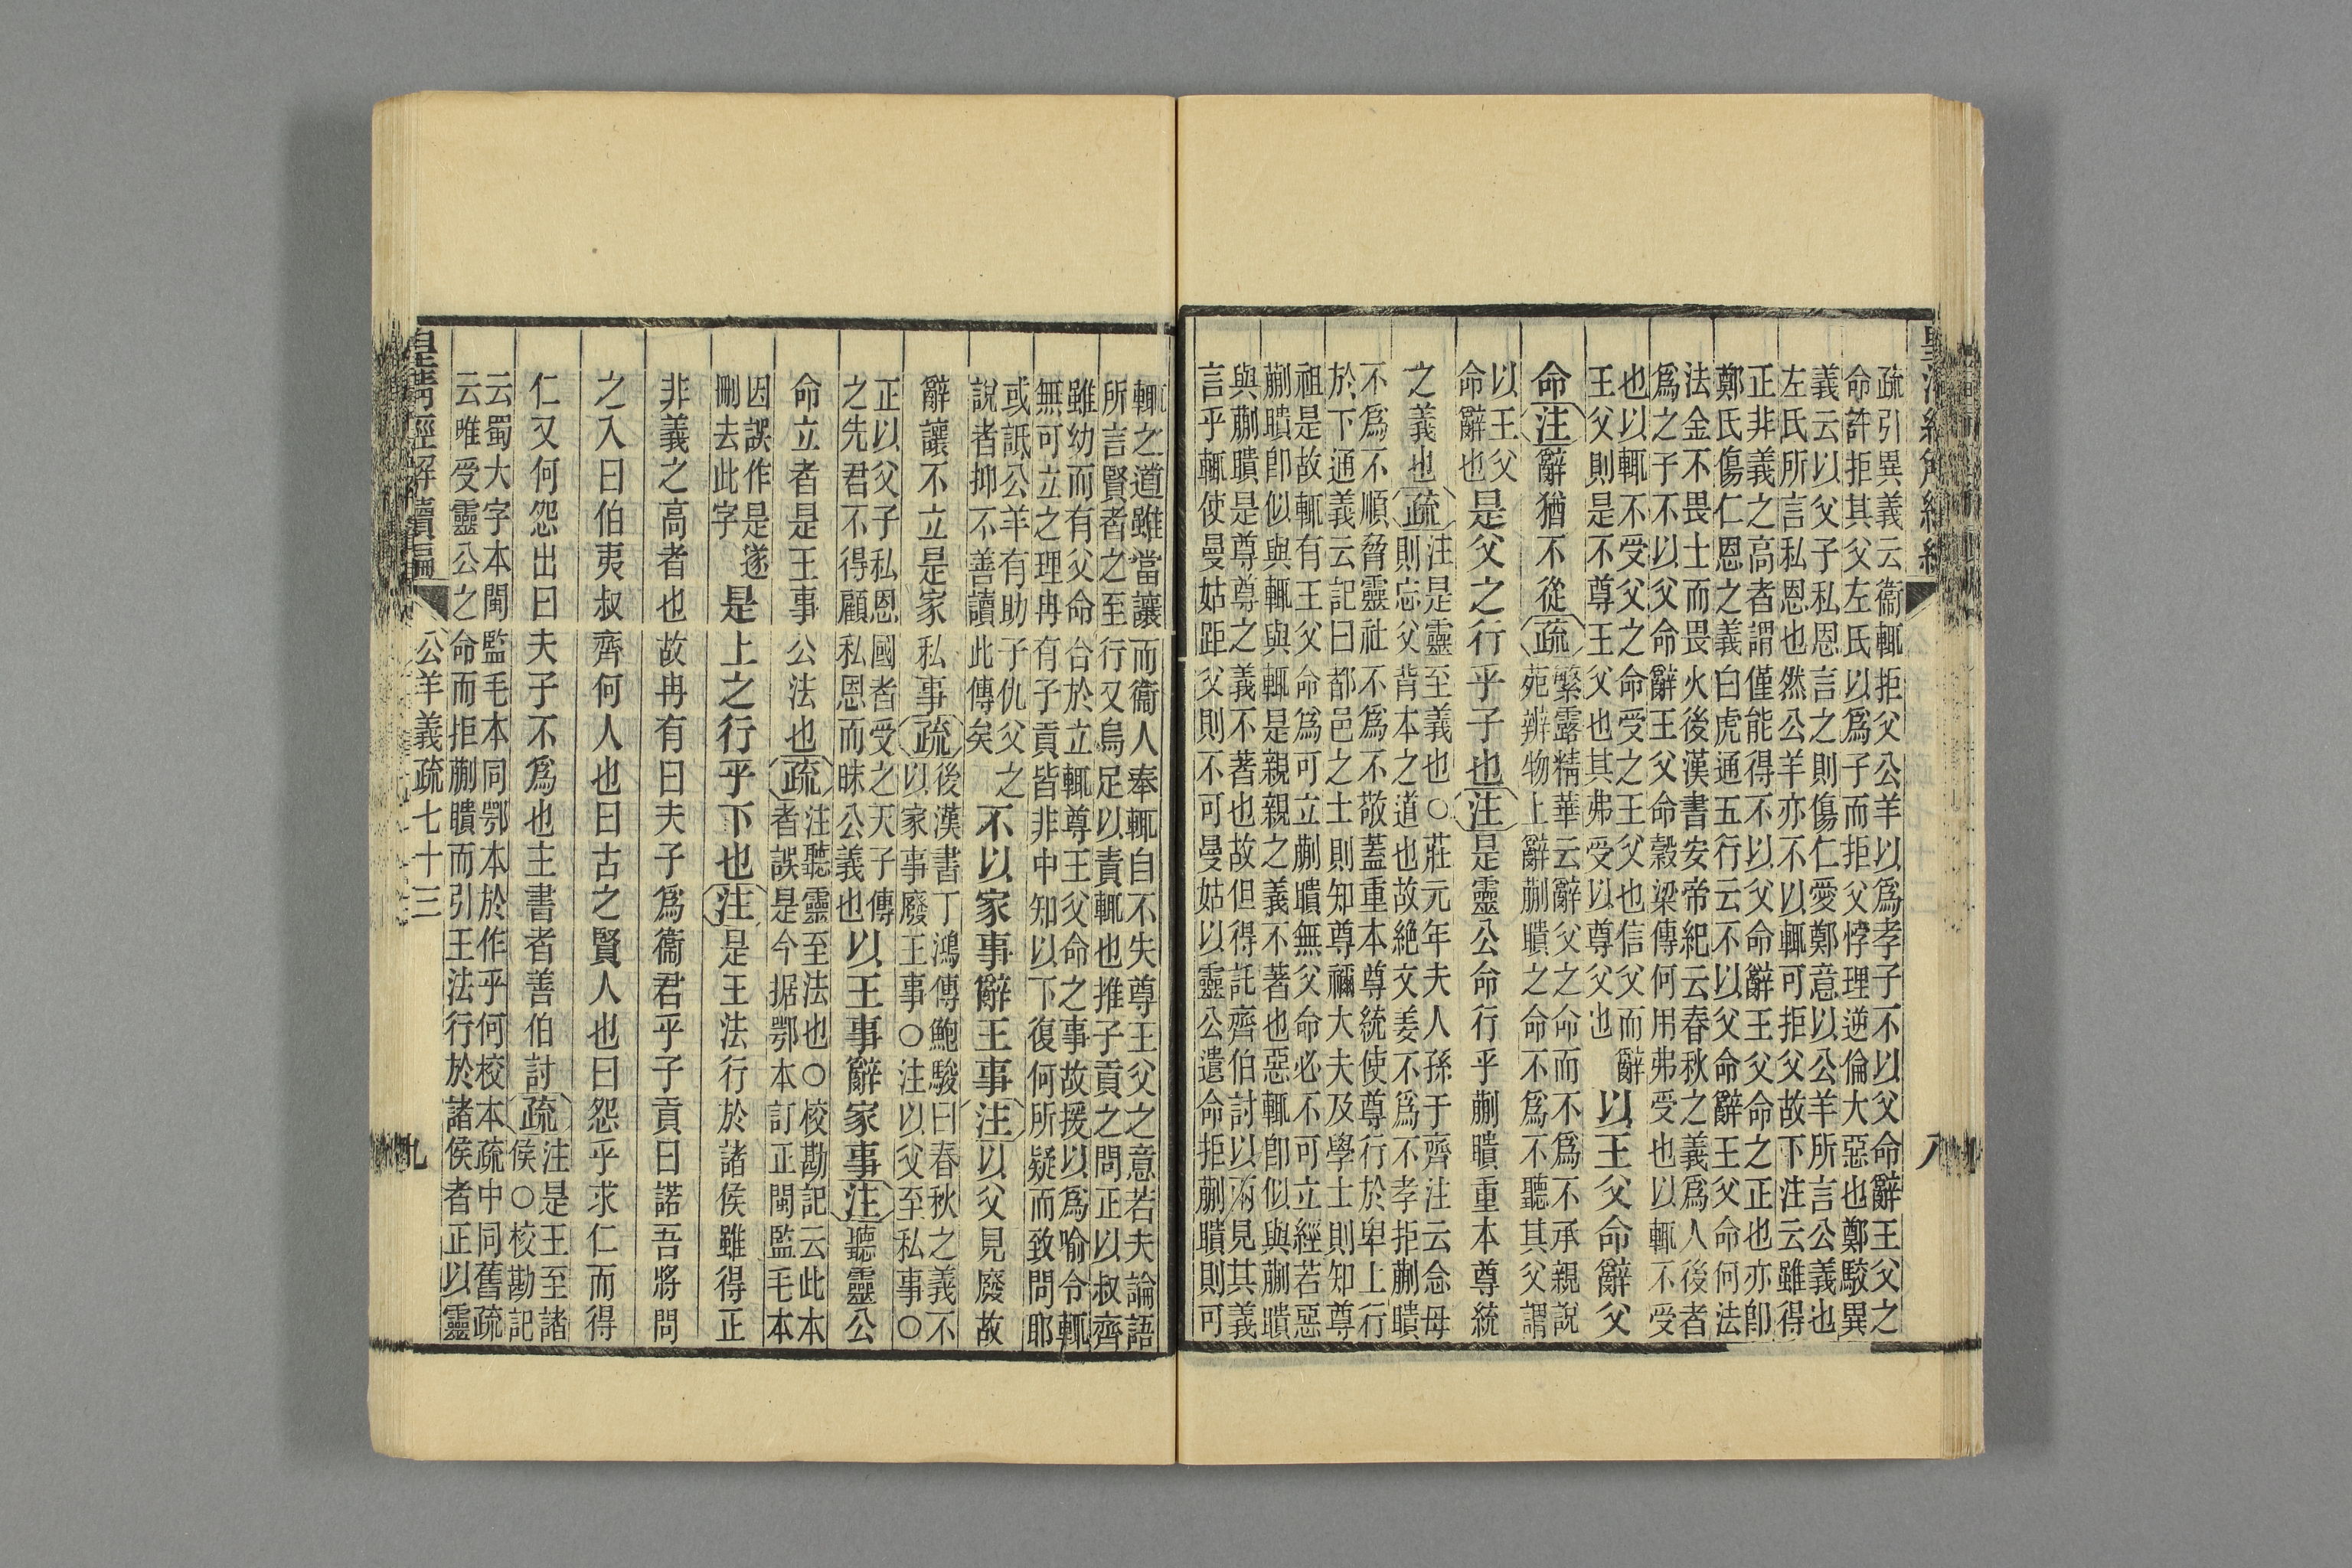 疏引異義云衞輒拒父公羊以爲孝子不以父命辭王父之
命許拒其父左氏以爲子而拒父悖理逆倫大惡也鄭駮異
義云以父子私恩言之則傷仁愛鄭意以公羊所言公義也
左氏所言私恩也然公羊亦不以輒可拒父故下注云雖得
正非義之高者謂僅能得不以父命辭王父命之正也亦卽
鄭氏傷仁恩之義白虎通五行云不以父命辭王父命何法
法金不畏士而畏火後漢書安帝紀云春秋之義爲人後者
爲之子不以父命辭王父命穀梁傳何用弗受也以輒不受
也以輒不受父之命受之王父也信父而辭
王父則是不尊王父也其弗受以尊父也
以王父命辭父
命
注
辭猶不從
疏
繁露精華云辭父之命而不爲不承親說
苑辨物上辭蒯聵之命不爲不聽其父謂
以王父
命辭也
是父之行乎子也
注
是靈公命行乎蒯聵重本尊統
之義也
疏
注是靈至義也○莊元年夫人孫于齊注云念母
則忘父背本之道也故絶文姜不爲不孝拒蒯聵
不爲不順脅靈社不爲不敬蓋重本尊統使尊行於卑上行
於下通義云記曰都邑之士則知尊禰大夫及學士則知尊
祖是故輒有王父命爲可立蒯聵無父命必不可立經若惡
蒯聵卽似與輒與輒是親親之義不著也惡輒卽似與蒯聵
與蒯聵是尊尊之義不著也故但得託齊伯討以兩見其義
言乎輒使曼姑距父則不可曼姑以靈公遣命拒蒯聵則可
皇清經解續編
八
輒之道雖當讓而衞人奉輒自不失尊王父之意若夫論語
所言賢者之至行又烏足以責輒也推子貢之問正以叔齊
雖幼而有父命合於立輒尊王父命之事故援以爲喻令輒
無可立之理冉有子貢皆非中知以下復何所疑而致問耶
或詆公羊有助子仇父之
說者抑不善讀此傳矣
不以家事辭王事
注
以父見廢故
辭讓不立是家私事
疏
後漢書丁鴻傳鮑駿曰春秋之義不
以家事廢王事○注以父至私事○
正以父子私恩國者受之天子傳
之先君不得顧私恩而昧公義也
以王事辭家事
注
聽靈公
命立者是王事公法也
疏
注聽靈至法也○校勘記云此本
者誤是今据鄂本訂正閩監毛本
因誤作是遂
刪去此字
是上之行乎下也
注
是王法行於諸侯雖得正
非義之高者也故冉有曰夫子爲衞君乎子貢曰諾吾將問
之入曰伯夷叔齊何人也曰古之賢人也曰怨乎求仁而得
仁又何怨出曰夫子不爲也主書者善伯討
疏
注是王至諸
侯○校勘記
云蜀大字本閩監毛本同鄂本於作乎何校本疏中同舊疏
云唯受靈公之命而拒蒯聵而引王法行於諸侯者正以靈
皇清經解續編
公羊義疏七十三
九